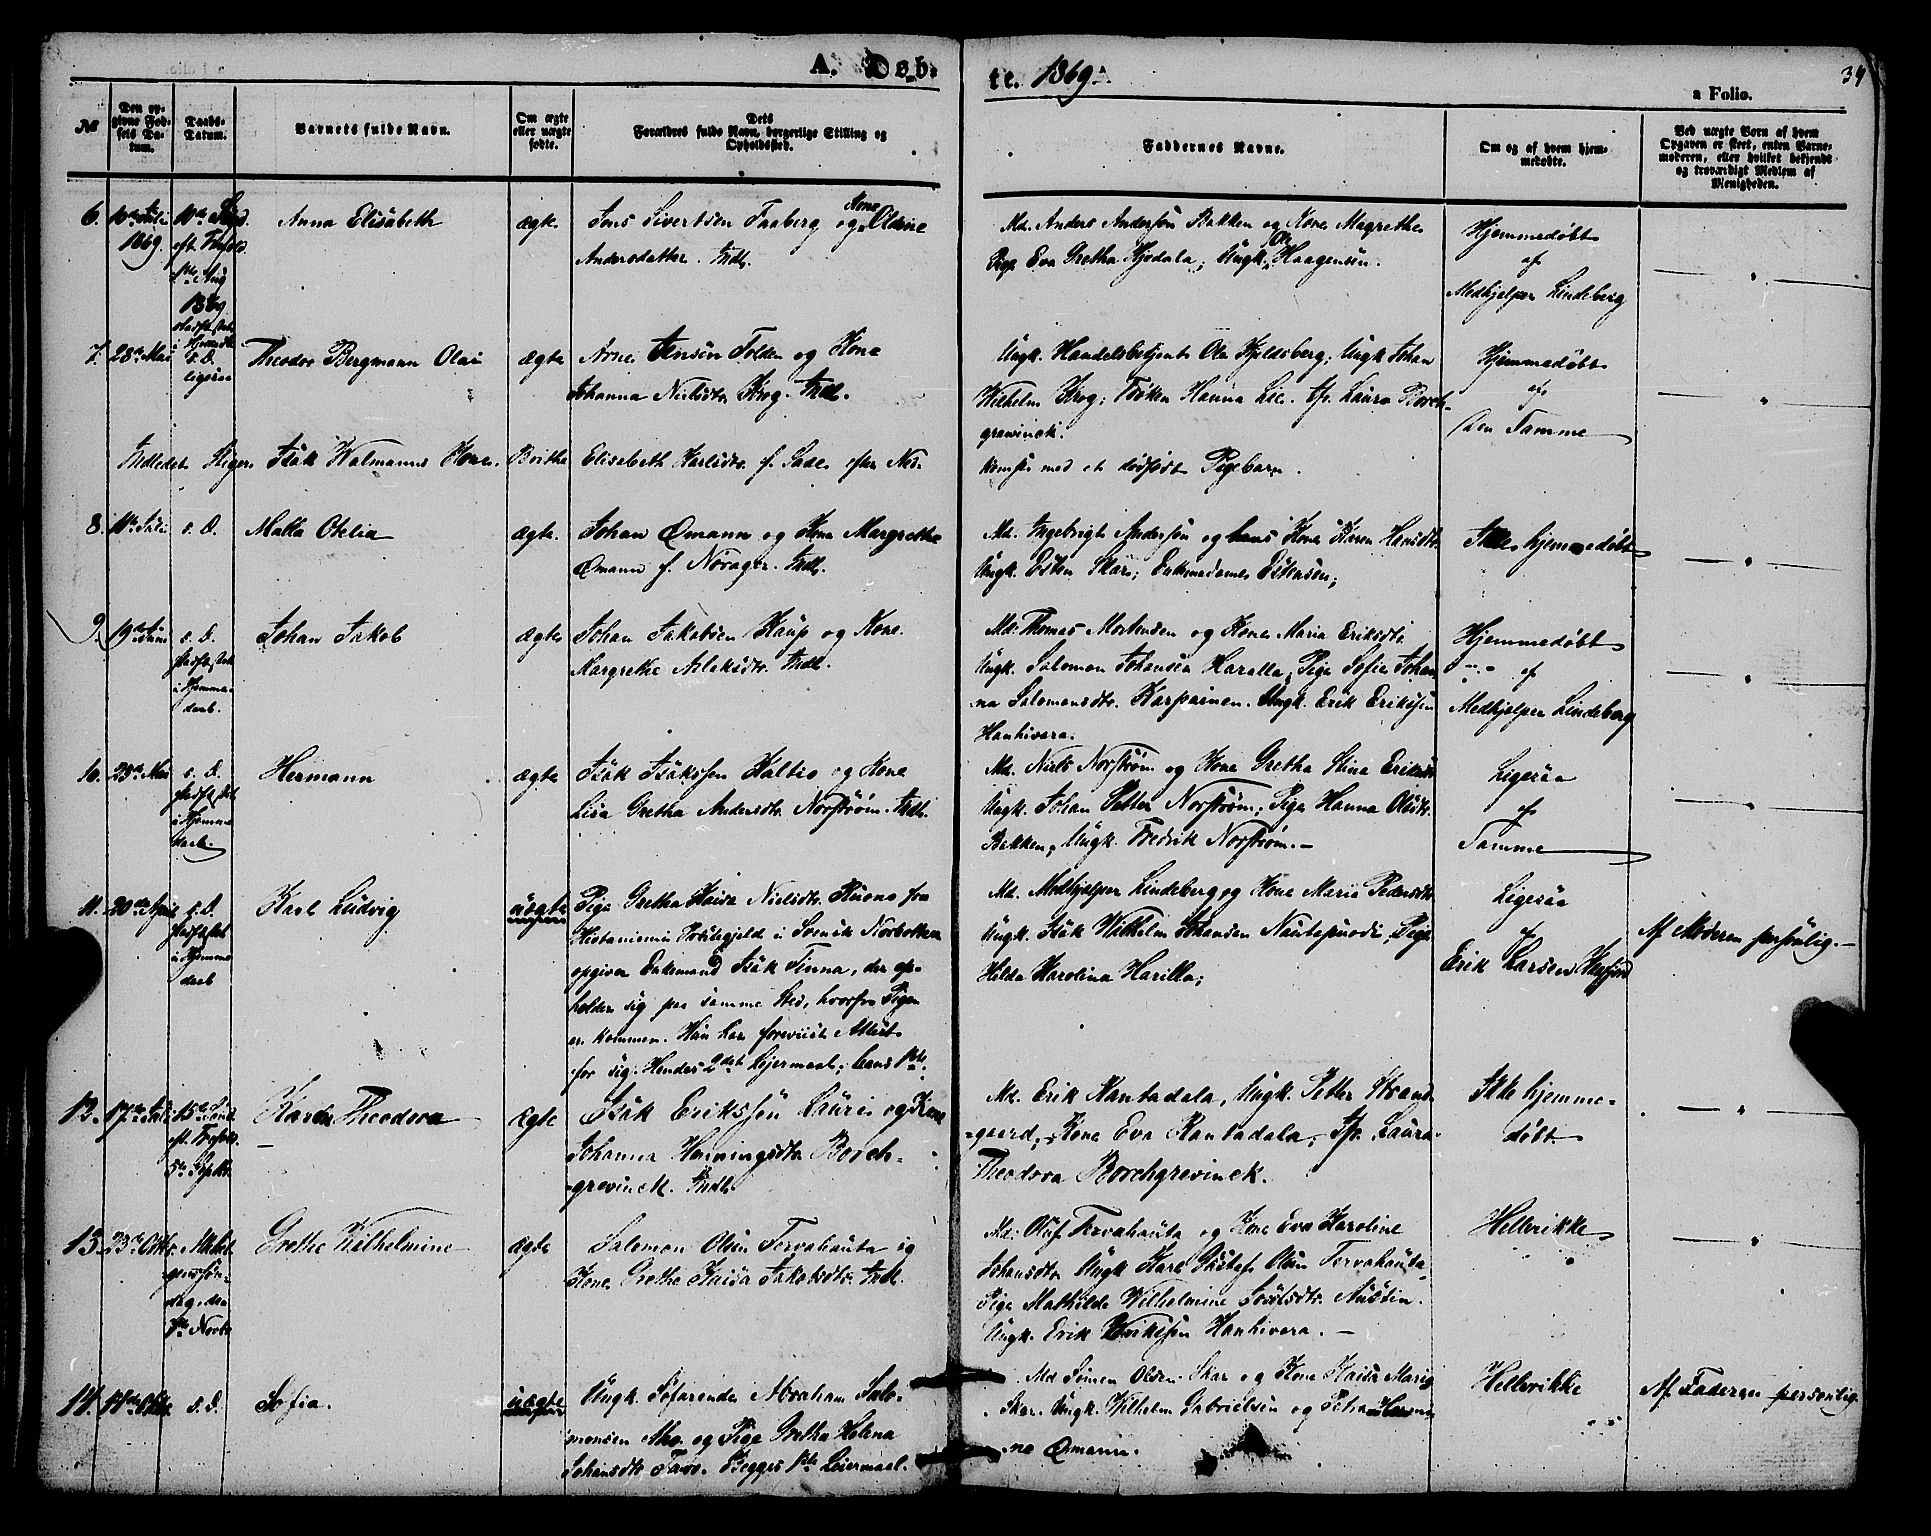 A. Døb-
te. 1869.
34
a Folio.
№
Den op-
givne Fød-
sels Da-
tum.
Daabs-
Datum.
Barnets fulde Navn.
Om ægte
eller uægte
fødte.
Dets
Forældres fulde Navn, borgerlige Stilling og
Opholdssted.
Faddernes Navne.
Om og af hvem hjem-
medøbte.
Ved uægte Børn af hvem
Opgaven er skeet, enten Barne-
moderen, eller hvilket bekjendt
og troværdigt Medlem af
Menigheden.
6.
1869.
1ste Aug
1869
Anna Elisabeth
ægte
Jens Sivertsen Faaberg og Kone Oldine
Andersdatter. Indl.
Md. Anders Andersen Bakken og Kone Magrethe
Pige Eva Gretha Hjedala; Ungk. Ole Haagensen.
Hjemmedøbt
af
Medhjelper Lindeberg
7. 28de Mai
s. D.
ligesaa
Theodor Bergmann Olai
ægte
Arne Jensen Folden og Kone
Johanna Nielsdtr. Krog. Indl.
Ungk. Handelsbetjent Ole Kjeldsberg; Ungk Johan
Wilhelm Krog; Frøken Hanna Lie. Fr. Laura Borch-
grevinck.
Hjemmedøbt
af
den Samme
Indledet Steiger Isak Walmanns Kone Britha Elisabeth Karlsdtr. f. Sade efter Ned-
komst med et dødfødt Pigebarn.
8. s. D.
Malla Otelia
ægte.
Johan Ømann og Kone Margrethe
Ømann f. Norager. Indl.
Md. Ingebrigt Andersen og hans Kone Karen Hansdtr.
Ungk. Esten Skar; Enkemadame Estensen;
Ikke hjemmedøbt
9. 19de Juni
s. D.
stadfæstet
i Hjemme-
daab.
Johan Jakob
ægte
Johan Jakobsen Kaup og Kone
Margrethe Aslaksdtr. Indl.
Md. Thomas Mortensen og Kone Maria Eriksdtr.
Ungk. Salomon Johansen Haralla, Pige Sofie Johan-
na Salomonsdtr. Karpainen. Ungk. Erik Eriksen
Hanhivara.
Hjemmedøbt
af
Medhjelper Lindeberg
10. 25de
s. D.
stadfæstet
i Hjemme-
daab.
Hermann
ægte
Isak Isaksen Kaltio og Kone
Lisa Gretha Andersdtr. Norstrøm. Indl.
Md. Niels Norstrøm og Kone Gretha Stina Eriksdtr.
Ungk. Johan Petter Norstrøm, Pige Hanna Olsdtr.
Bakken, Ungk. Fredrik Norstrøm.
Ligesaa
af
Samme
11. 20de April
s. D.
stadfæstet
i Hjemme-
daab
Karl Ludvig
uægte
Pige Gretha Kaisa Nielsdtr. Kuono fra
Hietaniemi Præstegjeld i Svensk Norbotten
opgiver Enkemand Isak Finna, der op-
holder sig paa samme Sted, hvorfra Pigen
er kommen. Hun har foreviist Attest
for sig. Hendes 2det Lejermaal, hans 1ste.
Md. Medhjelper Lindeberg og Kone Maria Pedersdtr.
Ungk. Isak Wilhelm Johansen Nautapuodi, Pige
Hilda Karolina Harilla;
Ligesaa
af
Erik Larsen
Af Moderen personlig.
12.
5te Septbr.
Theodora
ægte
Isak Erikssen Lauri og Kone
Johanna Henningsdtr. Borch-
grevinck. Indl.
Md. Erik Rantadala, Ungk. Petter Strand-
gaard, Kone Eva Rantadala, Fr. Laura
Theodora Borchgrevinck.
Ikke hjemme-
døbt
13. 23de Octbr.
7de Novbr.
Grethe Wilhelmine
ægte
Salomon Olsen Tervahauta og
Kone Gretha Kaisa Jakobsdtr. Indl.
Md. Oluf Tervahauta og Kone Eva Karoline
Johansdtr. Ungk. Karl Gustaf Olsen Tervahauta
Pige Mathilde Wilhelmine Austin.
Ungk. Erik Eriksen Hanhivara.
Hellerikke
14. s. D.
Sofia.
uægte
Ungk. Søfarende Abraham Salo-
monsen Aho og Pige Gretha Helena
Johansdtr. Begges 1ste Leiermaal.
Md Simen Olsen Skar og Kone Kaisa Maria
Skar. Ungk. Wilhelm Gabrielsen og Petra
na Ømann.
Hellerikke
Af Faderen personlig.